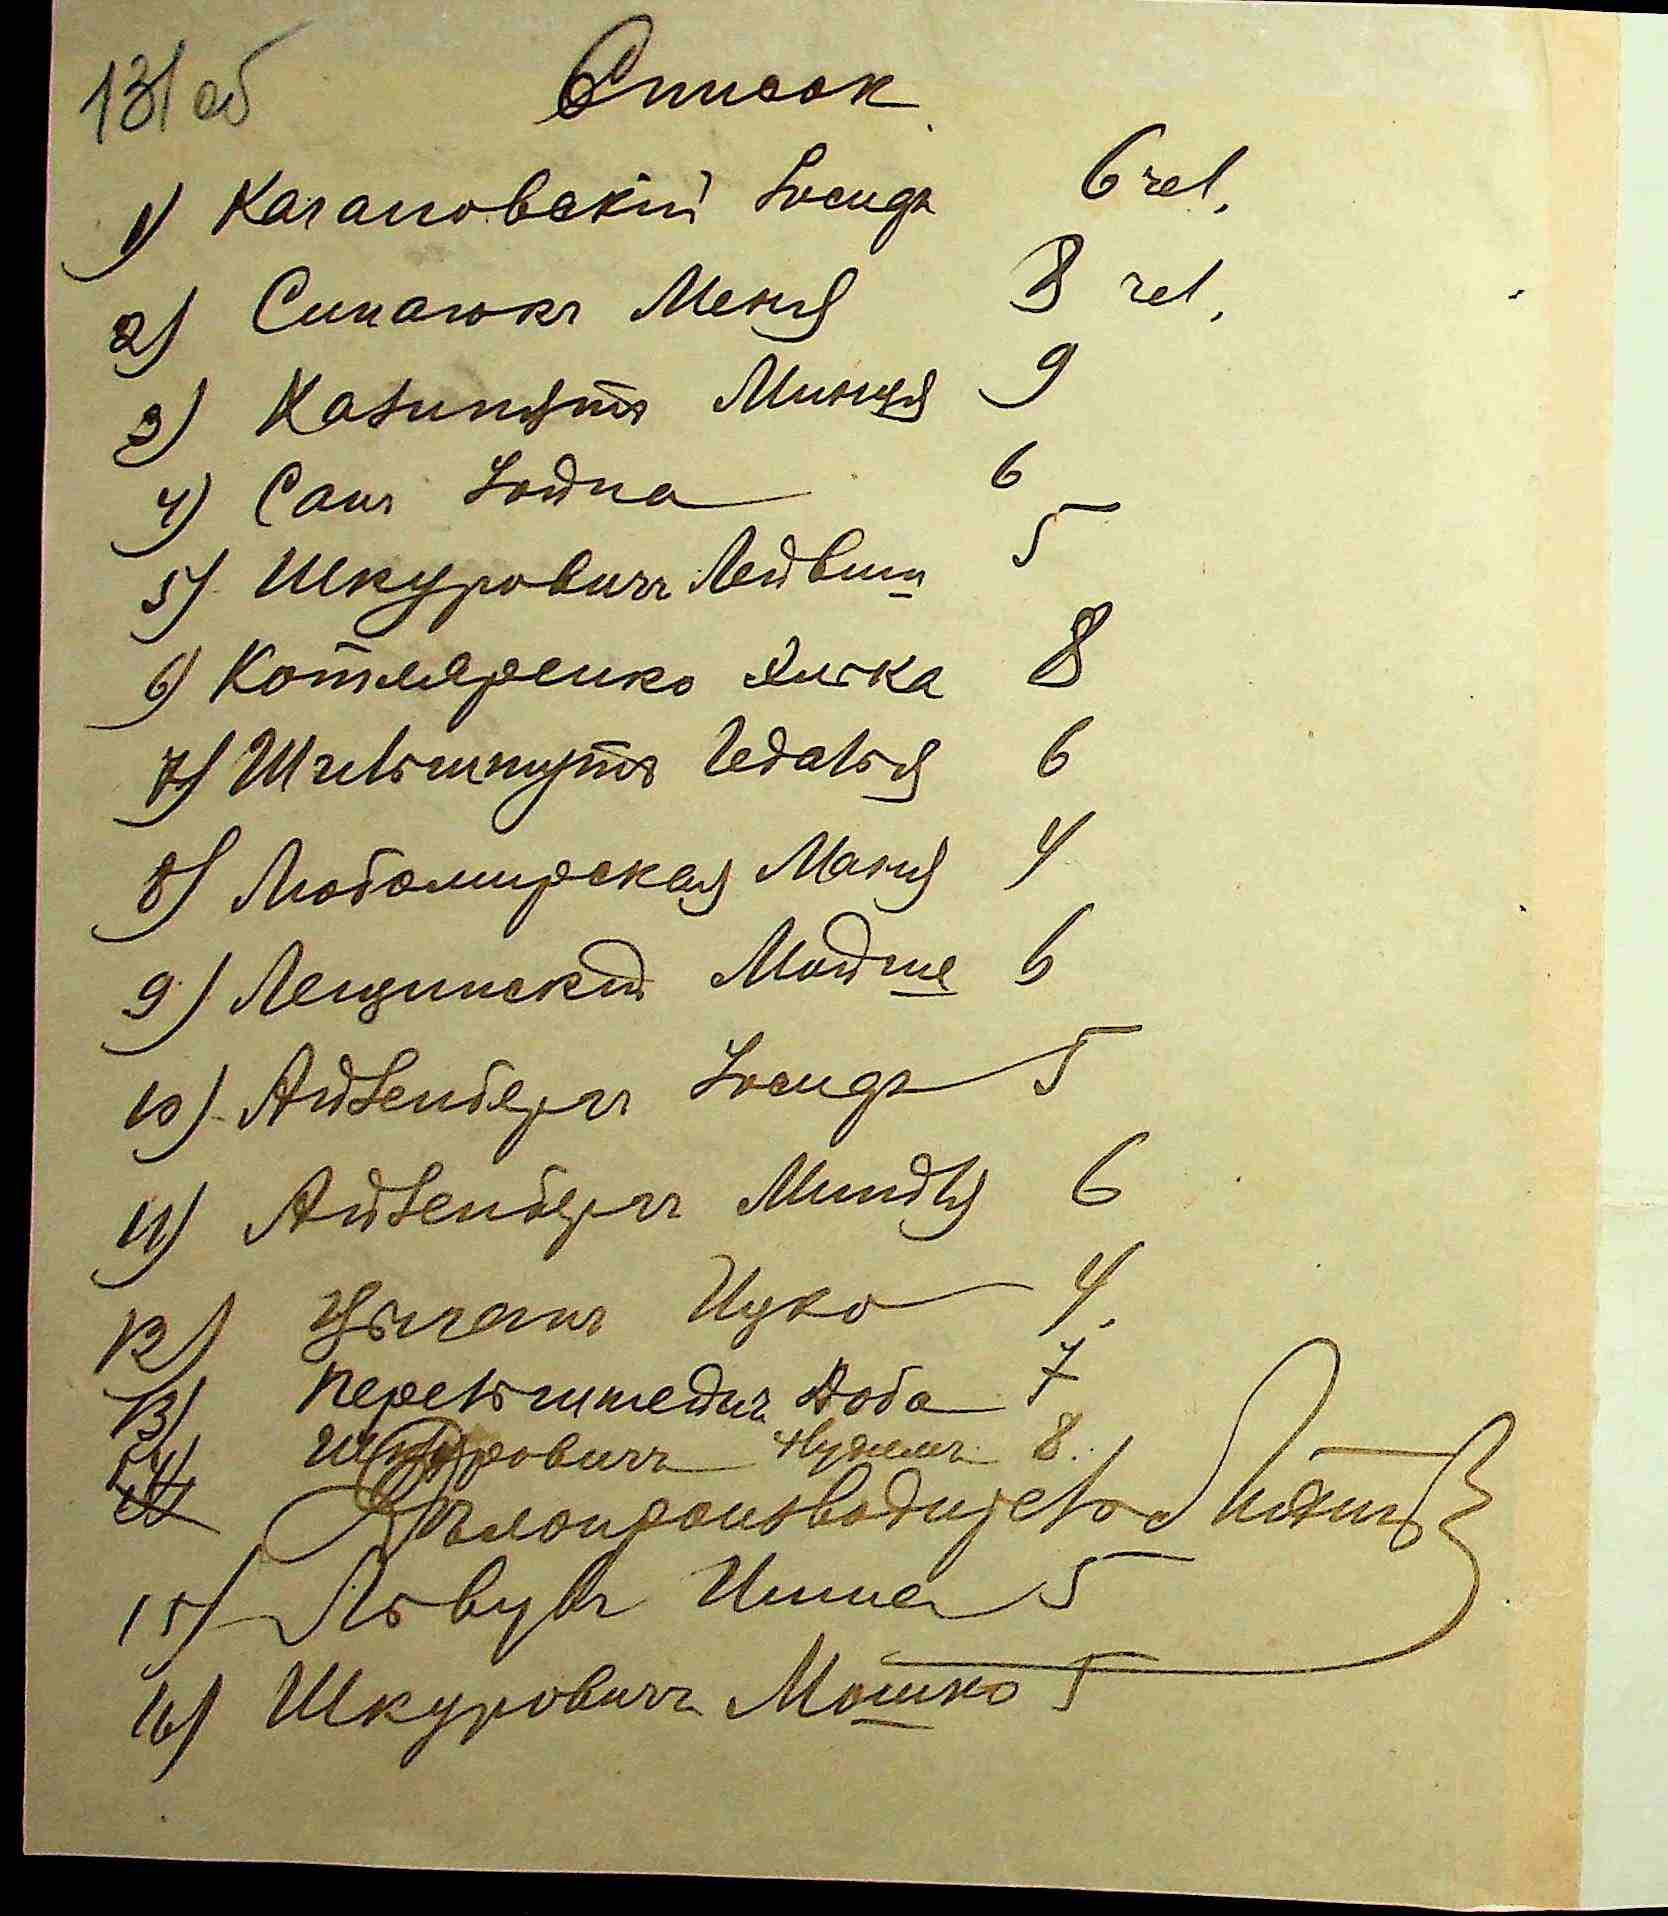 131 об
Список
1) Кагановскій Іосифъ 6 чел.
2) Синаюкъ Меня 8 чел.
3) Казинятъ Минця 9
4) Сапъ Іойна 6
5) Шкуровичъ Лейвиш 5
6) Котляренко Хаська 8
7) Штельшнутъ Гедалья 6
8) Любомирская Маня 4
9) Лещинскій Мойше 6
10) Айзенбергъ Іосифъ 5
11) Айзенбергъ Миндля 6
12) Цыганъ Ицко 4.
13) Перельштейнъ Доба 7
14) Шкуровичъ Нухимъ 8.
Дѣлопроизводитель
15) Львувъ Шика 5
16) Шкуровичъ Мошко 5